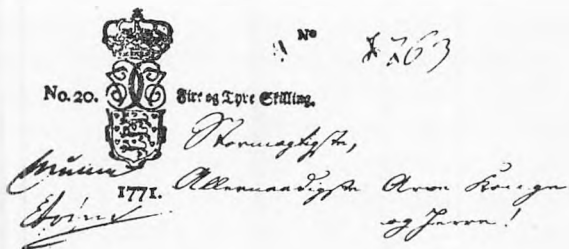 No
1763
No. 20. Fire og Tyve Skilling.
Stormægtigste,
1771.
Allernaadigste Arve Konge
og Herre!